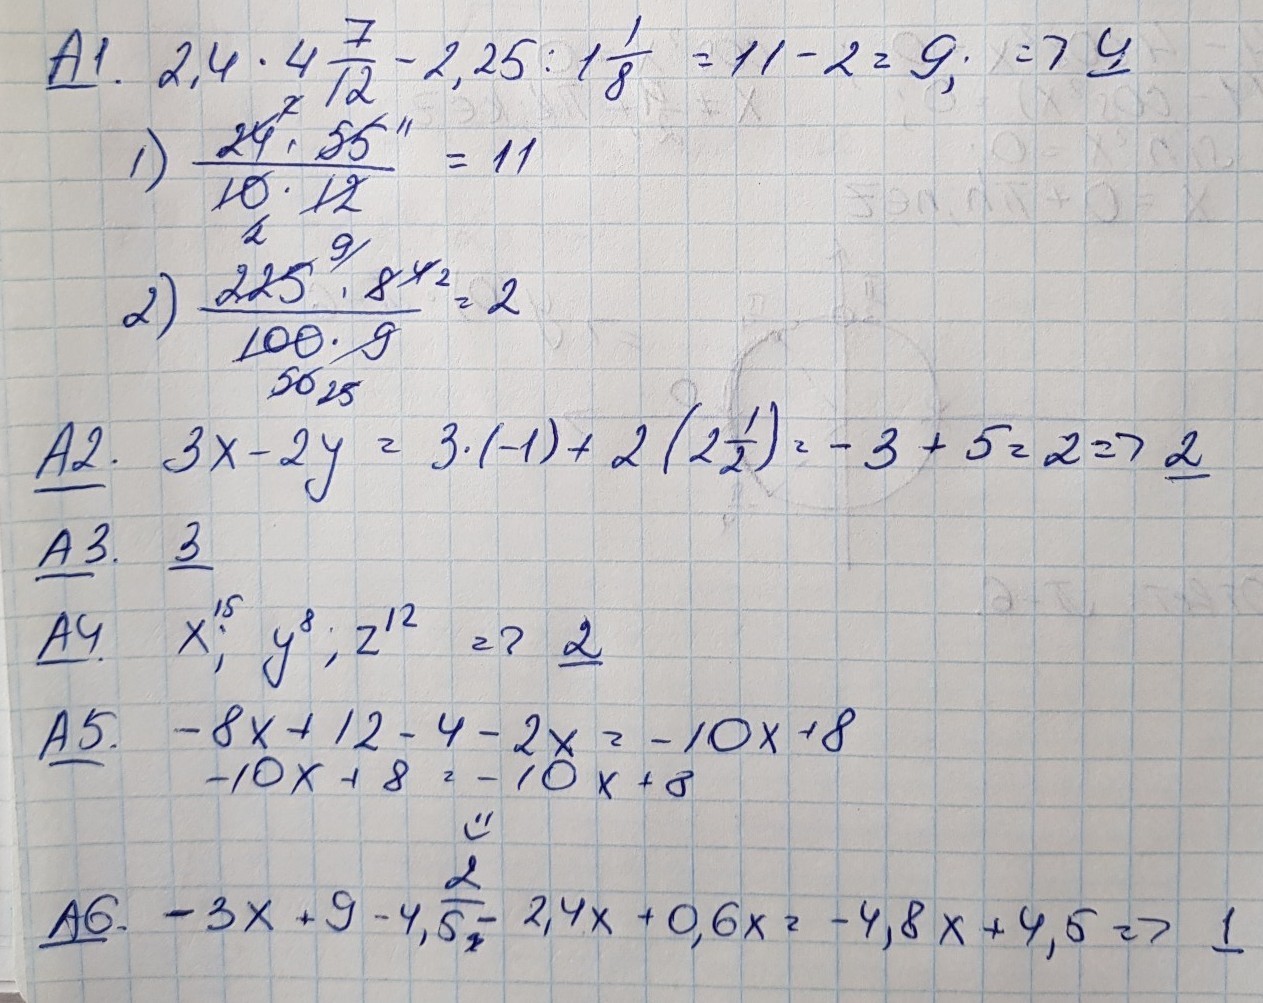 A1. 2,4 · 4 7/12 - 2,25 : 1 1/8 = 11 - 2 = 9; => 4
1) 24 · 55 / 10 · 12 = 11
2 11
2
2) 225 · 8 / 100 · 9 = 2
9 4 2
50 25
A2. 3x - 2y = 3 · (-1) + 2 (2 1/2) = - 3 + 5 = 2 => 2
A3. 3
A4. x^15; y^8; z^12 => 2
A5. - 8x + 12 - 4 - 2x = - 10x + 8
- 10x + 8 = - 10x + 8
2
A6. - 3x + 9 - 4,5 - 2,4x + 0,6x = - 4,8x + 4,5 => 1